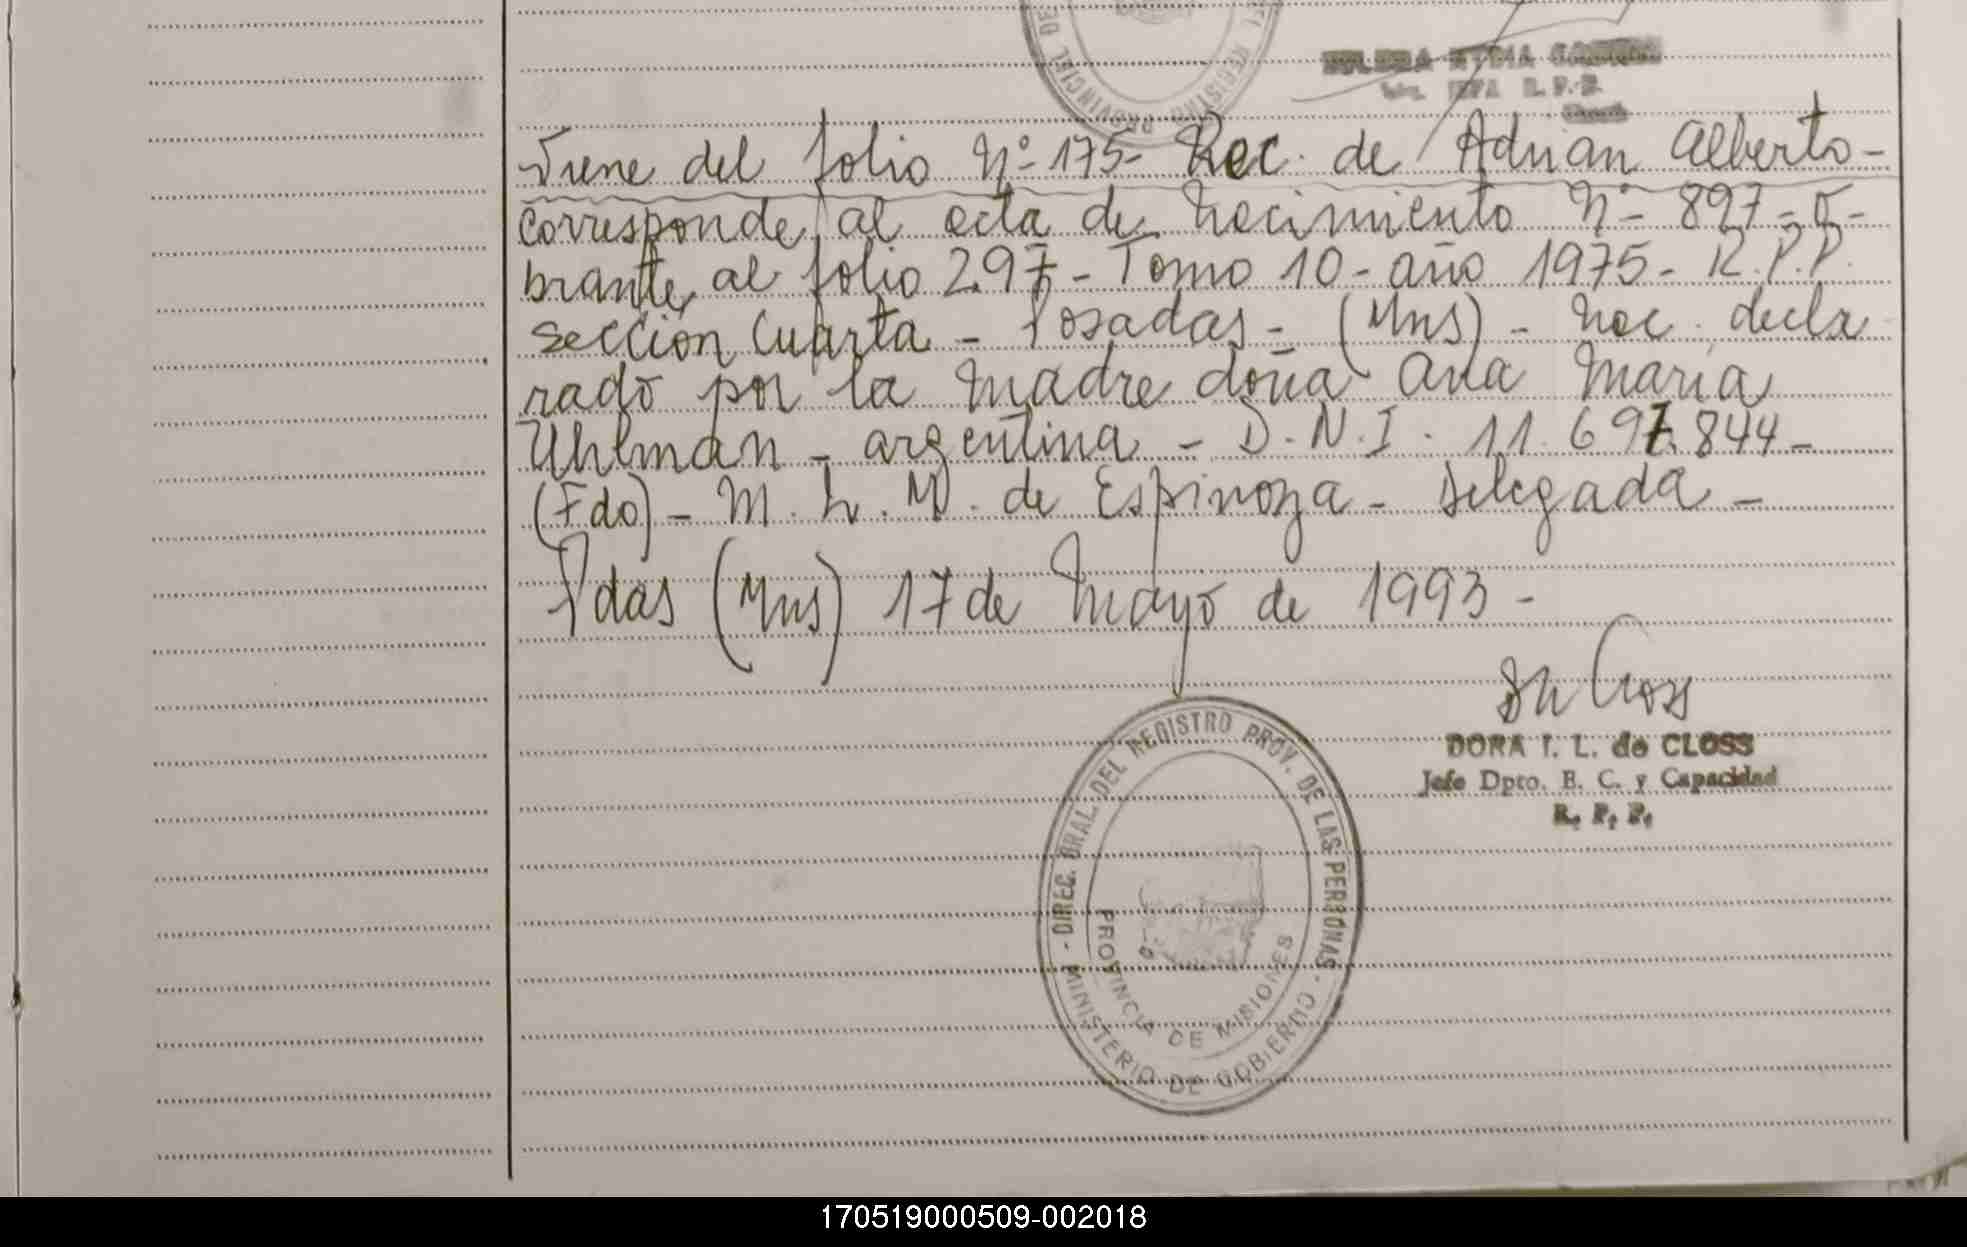 REGISTRO PROVINCIAL DE
R.P.P.
Viene del folio Nº 175- Rec. de Adrian Alberto-
corresponde al acta de Nacimiento Nº 897- o-
brante al folio 297- Tomo 10- año 1975- R.P.P.
sección Cuarta - Posadas- (Mns) - Nac. decla
rado por la madre doña Ana Maria
Uhlman - argentina - D.N.I. 11.697.844-
(Fdo)- M. L. M. de Espinoza - Delegada -
Pdas (Mns) 17 de Mayo de 1993-
DORA I. L. de CLOSS
Jefe Dpto. E. C. y Capacidad
R. P. P.
- DIREC. GRAL. DEL REGISTRO PROV. DE LAS PERSONAS -
MINISTERIO DE GOBIERNO
PROVINCIA DE MISIONES
170519000509-002018